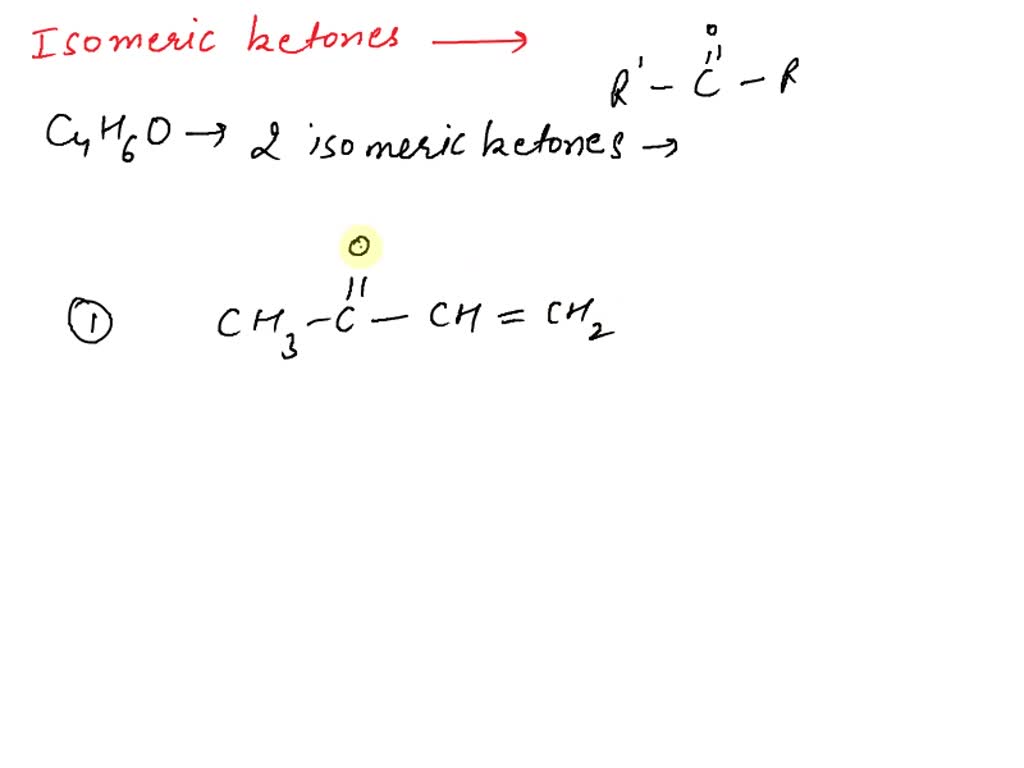 Isomeric ketones →
O
||
R' - C - R
C4H6O → 2 isomeric ketones →
O
||
① CH3 - C - CH = CH2